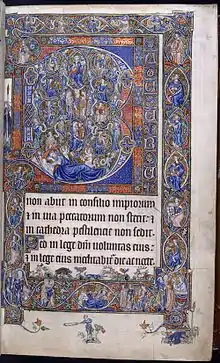 non abiit in consilio impiorum
et in via peccatorum non stetit: et
in cathedra pestilencie non sedit.
Sed in lege dni voluntas eius:
et in lege eius meditabit die ac nocte.